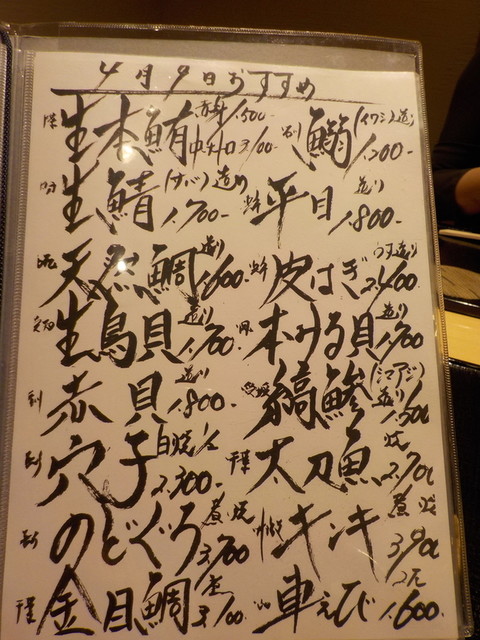 4月9日おすすめ
生本鮪 赤身1,500- 中トロ3,100-
鰯(イワシ)造り 1,200-
生鯖(サバ)造り 1,700-
平目 造り 1,800-
天然鯛 造り 1,600-
皮はぎ 造り 2,400-
生鳥貝 造り 1,700-
本みる貝 造り 1,700
赤貝 造り 1,800-
縞鯵(シマアジ)造り 1,500
穴子 白焼 2,300-
千葉 太刀魚 焼 2,700
のどぐろ 煮 焼 3,700
キンキ 煮 焼
千葉 金目鯛 3,100
車えび 1,600-